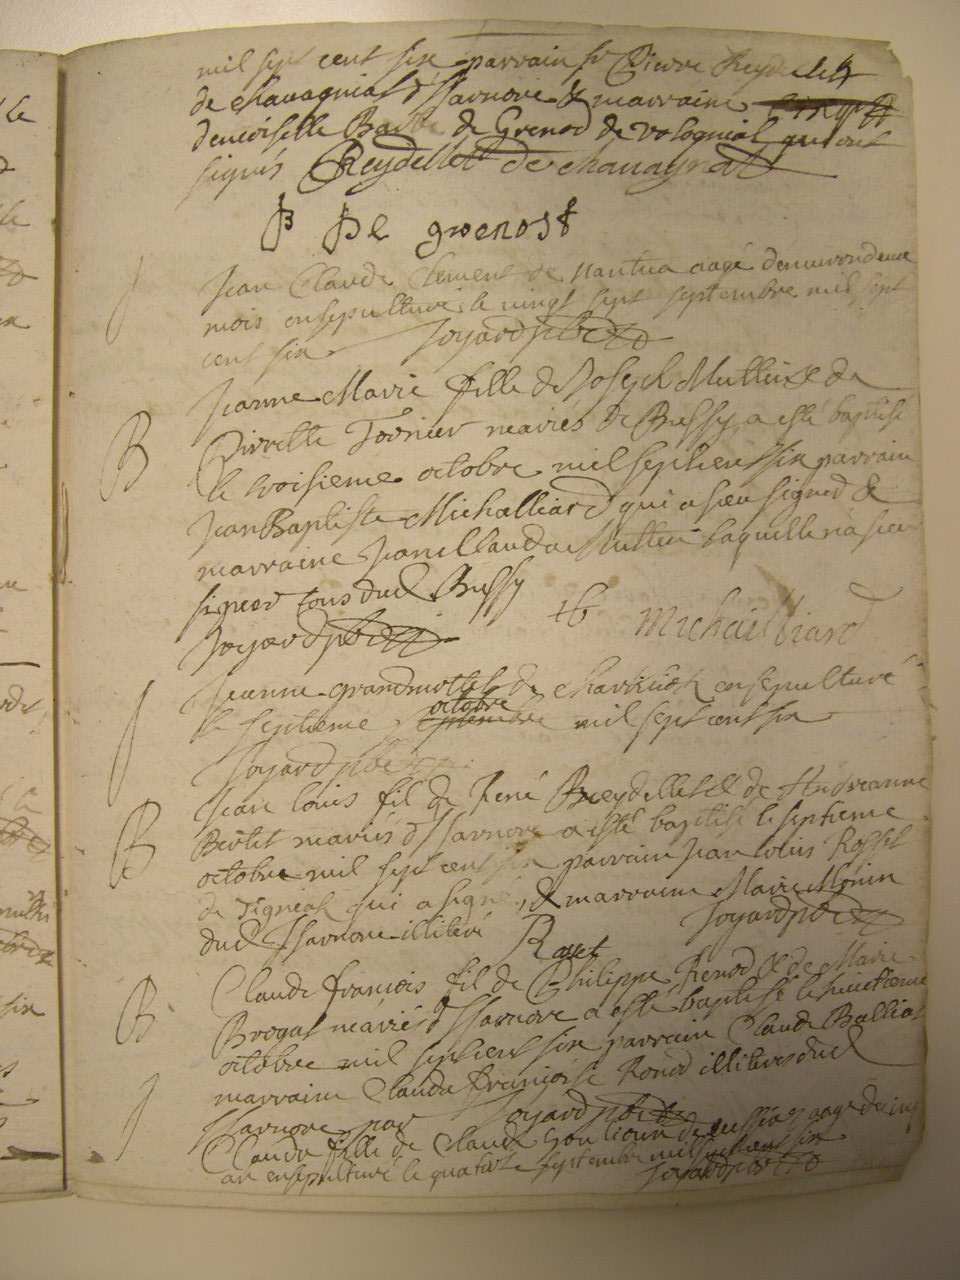 mil sept cent six parrain sr Pierre Reydellet
de chavagniat d'Isarnore & marraine
demoiselle Barbe de Grenod de volognial qui ont
signés Reydellet de chavagnat
B De grenost
Jean Claude Clement de Nantua aagé denviron deux
mois ensepulturé le vingt sept septembre mil sept
cent six Joyard pbre
Jeanne Marie fille de Joseph Mutliux & de
B Pierrette Tornier mariés de Bussy a esté baptisé
le troisieme octobre mil sept cent six parrain
Jean Baptiste Michalliard qui a sceu signer &
marraine Jeanclauda laquelle n'a sceu
signer tous dud Bussy
Joyard pbre JB Michailliard
Jeanne grandmottet de charviat ensepulturé
le septieme octobre mil sept cent six
Joyard pbre
Jean louis fil de René Reydellet & de Andreanne
B Bertet mariés d'Isarnore a esté baptisé le septieme
octobre mil sept cent six parrain Jean louis Rosset
de qui a signé, & marraine Marie Monin
dud Isarnore illiteré Roset Joyard pbre
Claude françois fil de Philippe Renod & de Marie
B Brogat mariés d'Isarnore a esté baptisé le huictieme
octobre mil sept cent six parrain Claude Balliat
marraine Clauda françoise Renod illiterés dud
Isarnore par Joyard pbre
Clauda fille de Claude de aage de
an ensepulturé le quatorze septembre mil sept cent six
Joyard pbre